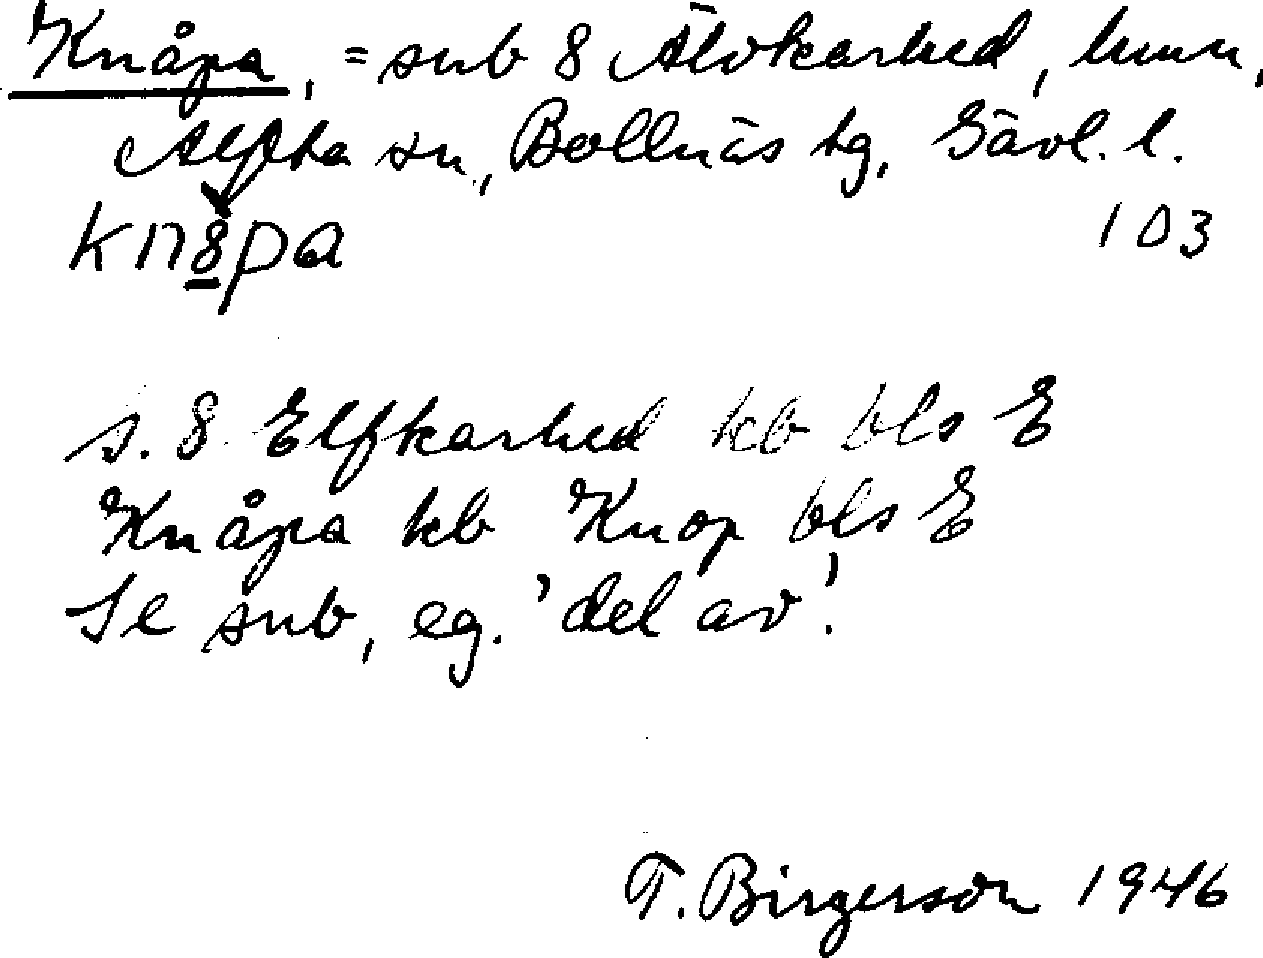 Knåpa, = sub 8 Älvkarhed, hmn,
Alfta sn, Bollnäs tg, Gävl. l.
kn8pa 103
s. 8 Elfkarhed kb bls E
Knåpa kb Knop bls E
Se sub, eg. 'del av'.
T. Birgerson 1946